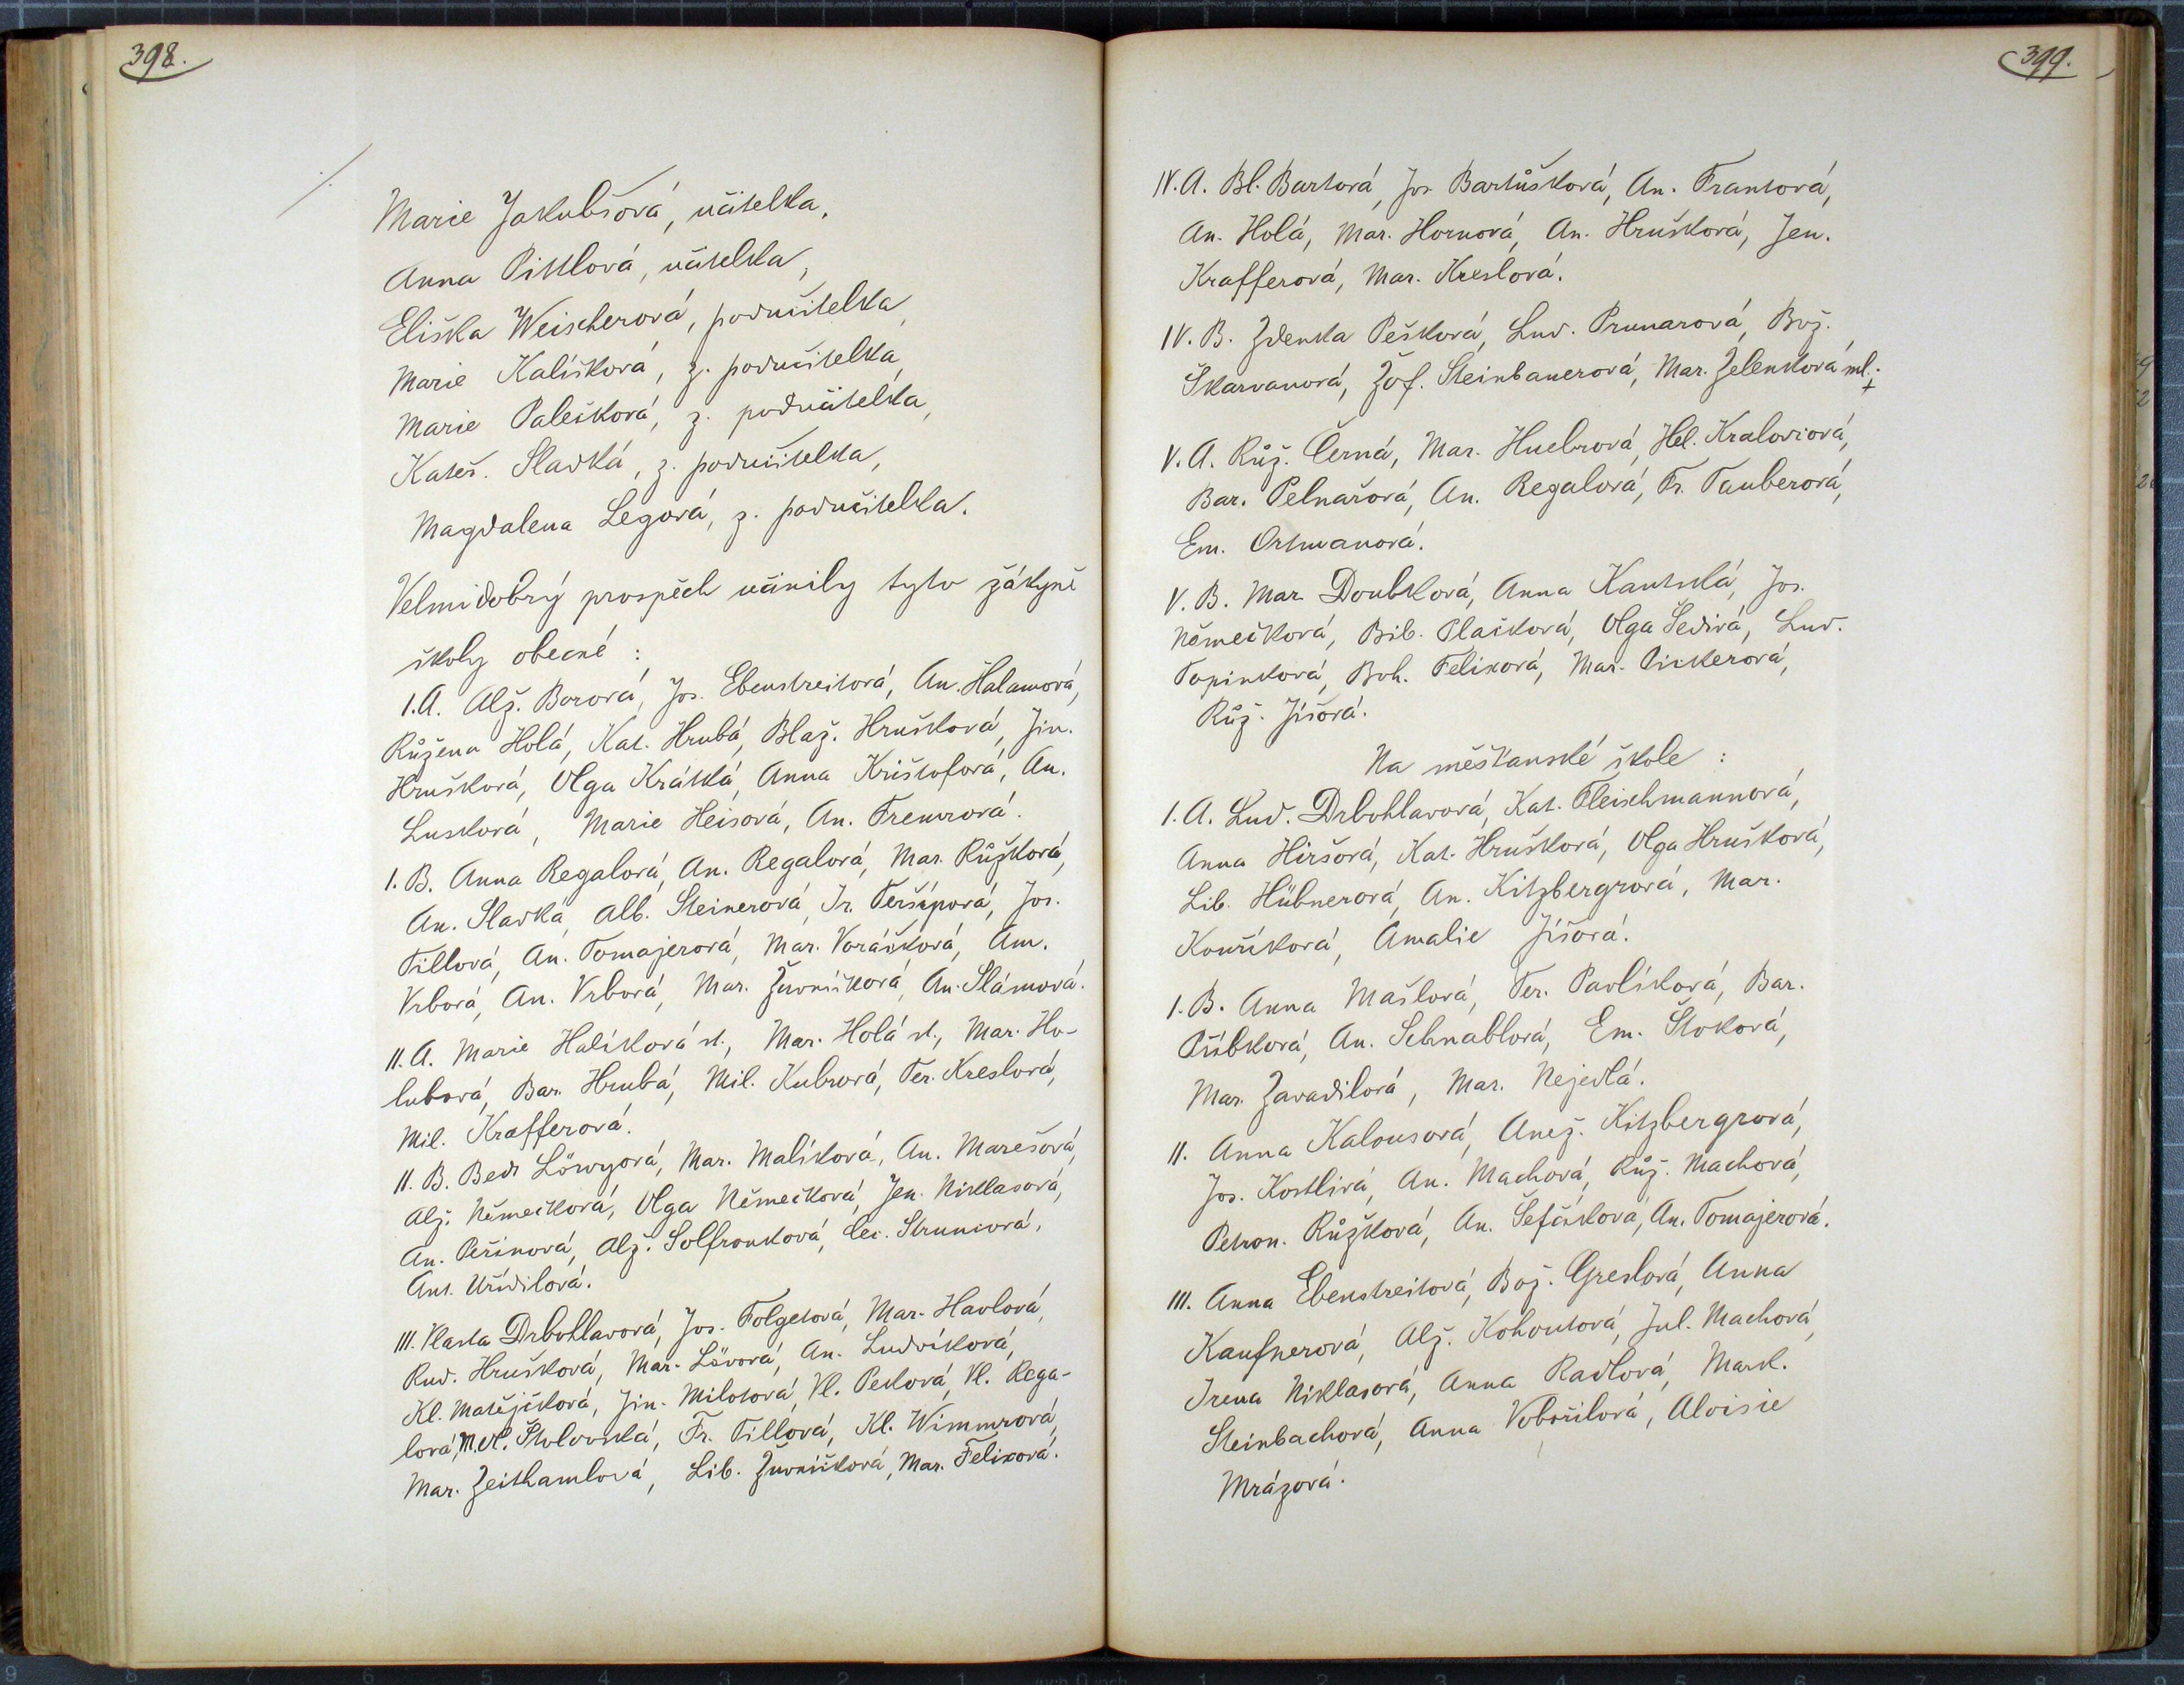 398.
Marie Jakubšová, učitelka,
Anna Pittlová, učitelka,
Eliška Weischerová, podučitelka,
Marie Kalíšková, z. podučitelka,
Marie Palečková, z. podučitelka,
Kateř. Sladká, z. podučitelka,
Magdalena Legová, z. podučitelka.
Velmi dobrý prospěch učinily tyto žákyně
školy obecné :
I. A. Alž. Borová, Jos. Ebenstreitová, An. Halamová,
Růžena Holá, Kat. Hrubá, Blaž. Hrušková, Jin.
Hrušková, Olga Krátká, Anna Krištofová, An.
Lusková, Marie Heisová, An. Fremrová.
I. B. Anna Regalová, An. Regalová, Mar. Růžková,
An. Sladká, Alb. Steinerová, Fr. Teršípová, Jos.
Tillová, An. Tomajerová, Mar. Voráčková, Am.
Vrbová, An. Vrbová, Mar. Žurníčková, An. Slámová.
II. A. Marie Halíková st., Mar. Holá st., Mar. Ho-
lubová, Bar. Hrubá, Mil. Kubrová, Ter. Kreslová,
Mil. Krafferová.
II. B. Bedř. Löwyová, Mar. Malíková, An. Marešová,
Alž. Němečková, Olga Němečková, Jen. Niklasová,
An. Peřinová, Alž. Solfronková, Cec. Struncová,
Ant. Uřídilová.
III. Vlasta Drbohlavová, Jos. Folgetová, Mar. Havlová,
Rud. Hrušková, Mar. Lövová, An. Ludvíková,
Kl. Matějčková, Jin. Milotová, Vl. Pecková, Vl. Rega-
lová, M. St. Stolovská, Fr. Tillová, Kl. Wimmrová,
Mar. Zeithamlová, Lib. Žurníčková, Mar. Felixová.
399.
IV. A. Bl. Bartová, Jos. Bartůšková, An. Frantová,
An. Holá, Mar. Hornová, An. Hrušková, Jen.
Krafferová, Mar. Kreslová.
IV. B. Zdenka Pešková, Lud. Prunarová, Bož.
Škarvanová, Žof. Steinbauerová, Mar. Zelenková ml.;
V. A. Růž. Černá, Mar. Huebrová, Hel. Kralovcová,
Bar. Pelnařová, An. Regalová, Fr. Tauberová,
Em. Ortmanová.
V. B. Mar. Doubková, Anna Kautská, Jos.
Němečková, Bib. Plačková, Olga Šedivá, Lud.
Topinková, Boh. Felixová, Mar. Pickerová,
Růž. Jíšová.
Na měšťanské škole :
I. A. Lud. Drbohlavová, Kat. Fleischmannová,
Anna Hiršová, Kat. Hrušková, Olga Hrušková,
Lib. Hübnerová, An. Kitzbergrová, Mar.
Kouříková, Amalie Jíšová.
I. B. Anna Mašlová, Ter. Pavlíková, Bar.
Přibková, An. Schnablová, Em. Šloková,
Mar. Zavadilová, Mar. Nejedlá.
II. Anna Kalousová, Anež. Kitzbergrová,
Jos. Kostlivá, An. Machová, Růž. Machová,
Petron. Růžková, An. Šefčíková, An. Tomajerová.
III. Anna Ebenstreitová, Bož. Greslová, Anna
Kaufnerová, Alž. Kohoutová, Jul. Machová,
Irena Niklasová, Anna Radlová, Mark.
Steinbachová, Anna Vobořilová, Aloisie
Mrázová.